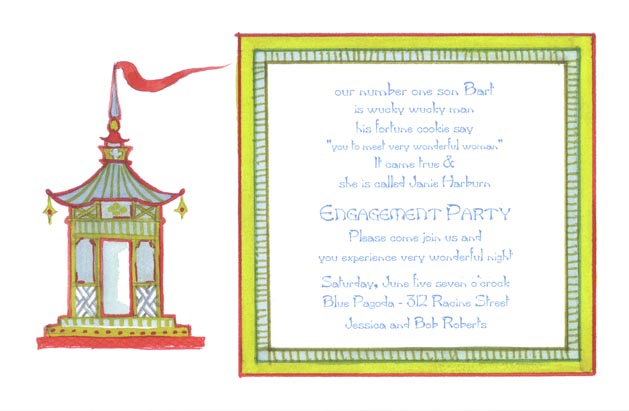 our number one son Bart
is wucky wucky man
his fortune cookie say
"you to meet very wonderful woman"
It came true &
she is called Janie Harburn
ENGAGEMENT PARTY
Please come join us and
you experience very wonderful night
Saturday, June five seven o'crock
Blue Pagoda - 312 Racine Street
Jessica and Bob Roberts